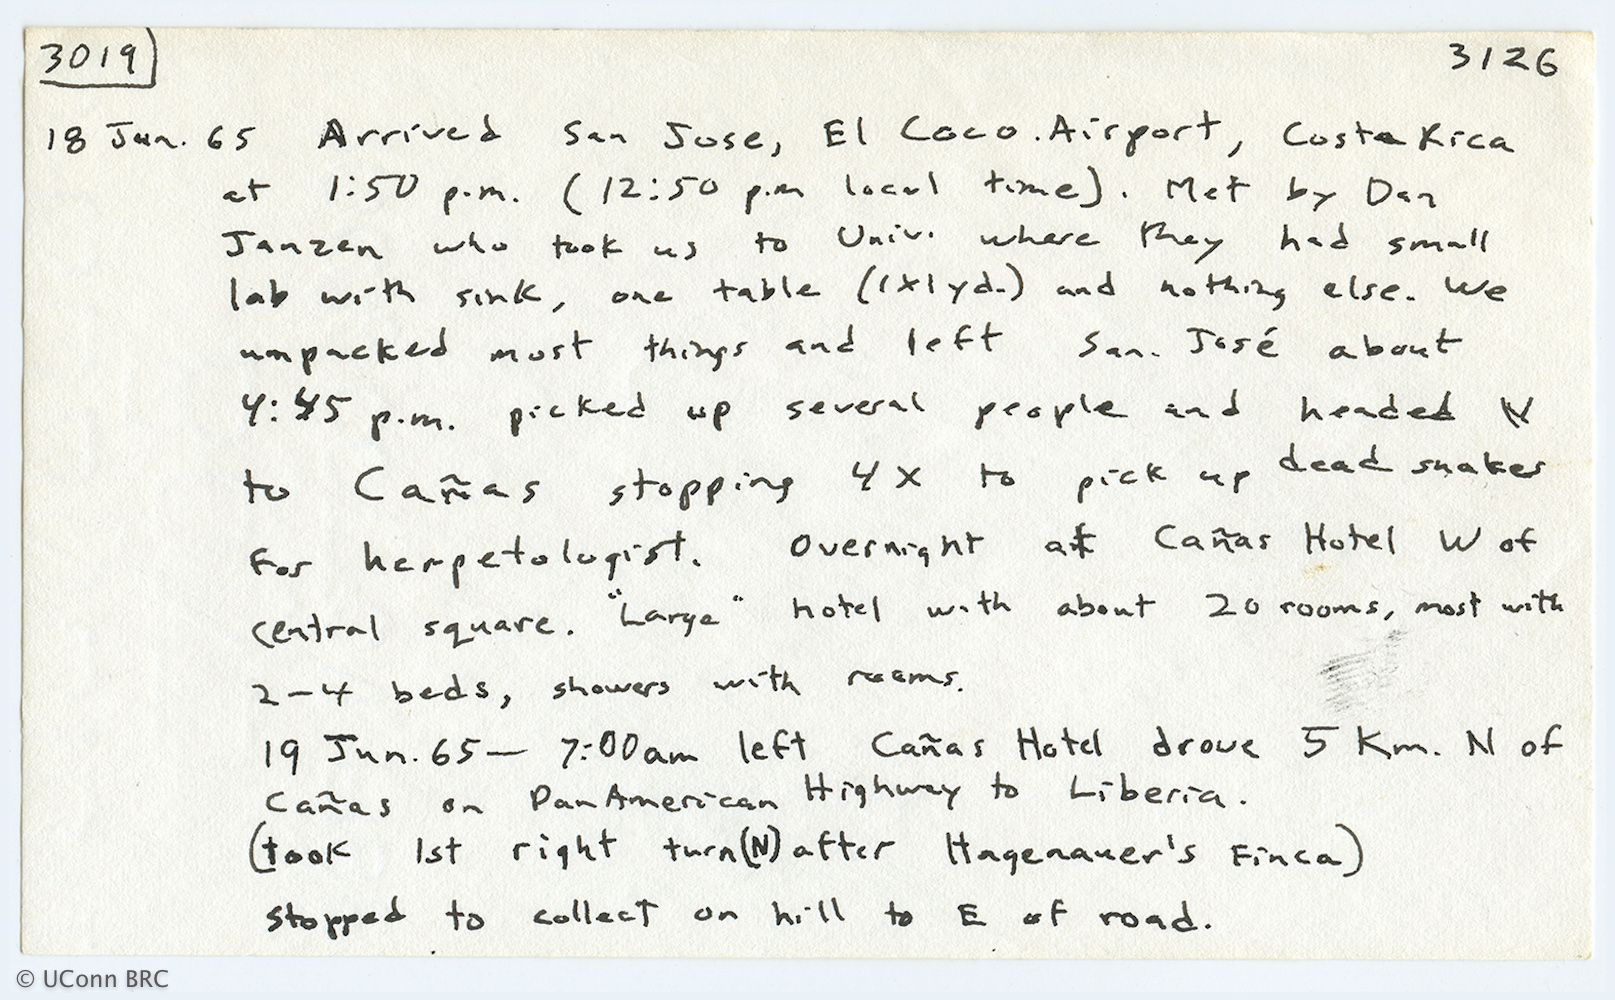 3019 3126
18 Jun. 65 Arrived San Jose, El Coco. Airport, Costa Rica
at 1:50 p.m. (12:50 p.m local time). Met by Dan
Janzen who took us to Univ. where they had small
lab with sink, one table (1x1yd.) and nothing else. We
unpacked most things and left San. José about
4:45 p.m. picked up several people and headed N
to Cañas stopping 4X to pick up dead snakes
For herpetologist. Overnight at Cañas Hotel W of
central square. "Large" hotel with about 20 rooms, most with
2-4 beds, showers with rooms.
19 Jun. 65— 7:00am left Cañas Hotel drove 5 Km. N of
Cañas on PanAmerican Highway to Liberia.
(took 1st right turn(N) after Hagenauer's Finca)
stopped to collect on hill to E of road.
© UConn BRC